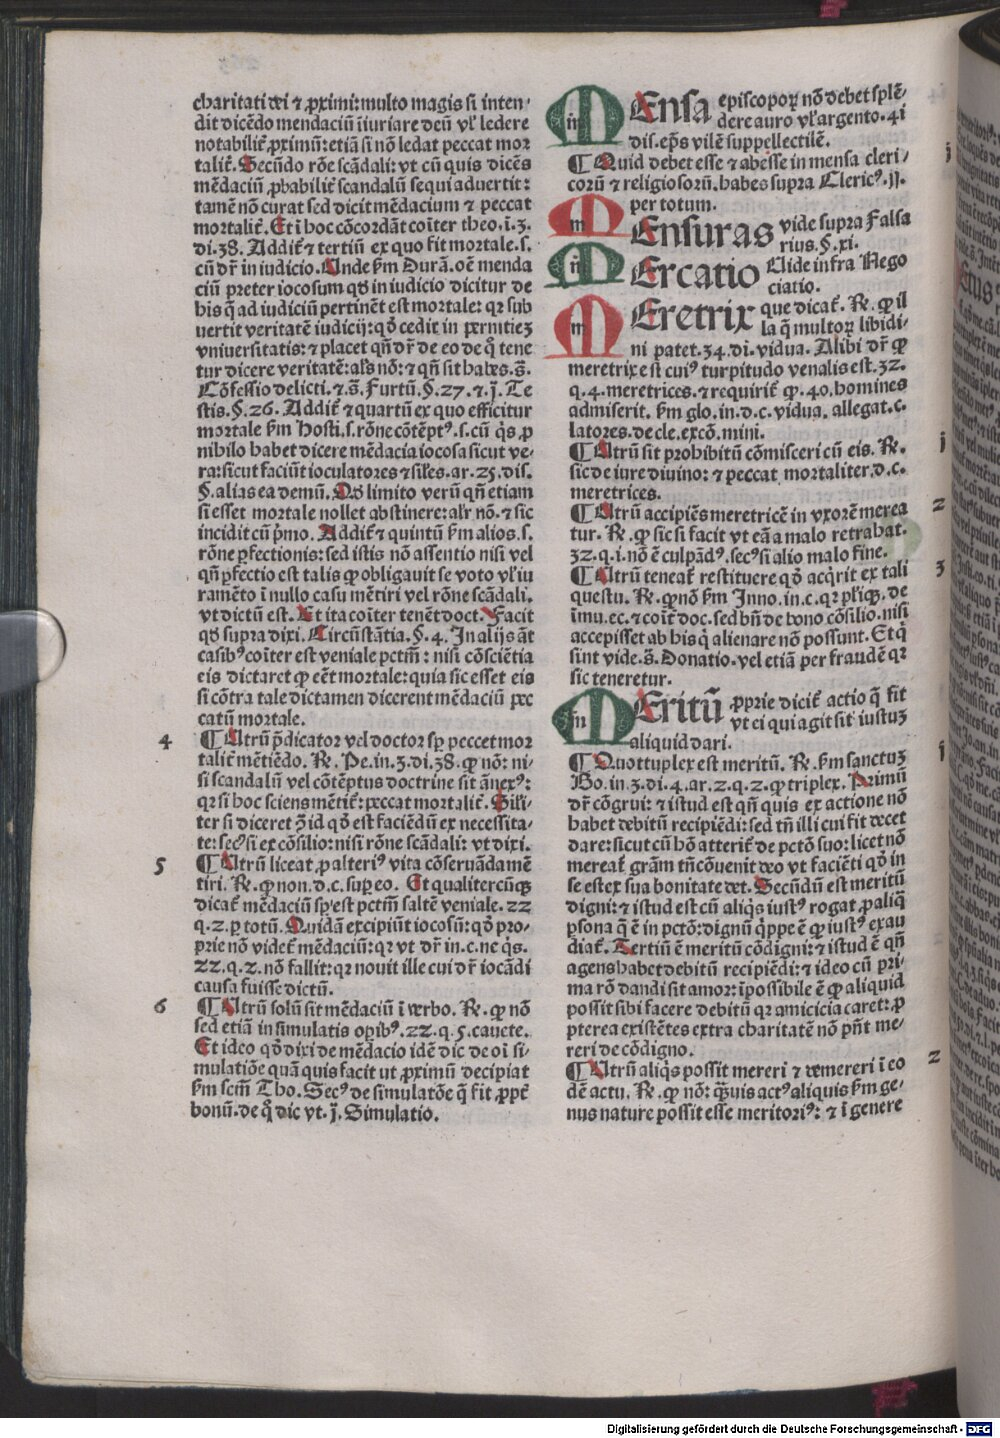 charitati dei ⁊ ꝓximi: multo magis si inten⸗
dit dicẽdo mendaciũ iniuriare deũ vl̕ ledere
notabilit̕ ꝓximũ: etiã si nõ ledat peccat mor
talit̕. Secũdo rõe scãdali: vt cũ quis dicẽs
mẽdaciũ ꝓbabilit̕ scandalũ sequi aduertit:
tamẽ nõ curat sed dicit mẽdacium ⁊ peccat
mortalit̕. Et ĩ hoc cõcordãt coĩter theo. ĩ. 3.
di. 38. Addit̕ ⁊ tertiũ ex quo fit mortale. s.
cũ dr̃ in iudicio. Unde ẜm Durã. oẽ menda
ciũ preter iocosum qđ in iudicio dicitur de
his q̃ ad iudiciũ pertinẽt est mortale: qꝛ sub
uertit veritatẽ iudicij: qđ cedit in pernitiez
vniuersitatis: ⁊ placet qñ dr̃ de eo de q̊ tene
tur dicere veritatẽ: al̕s nõ: ⁊ qñ sit habes. s̃.
Cõfessio delicti. ⁊ s̃. Furtũ. §. 27. ⁊ j̃. Te
stis. §. 26. Addit̕ ⁊ quartũ ex quo efficitur
mortale ẜm Hosti. s. rõne cõtẽptꝰ. s. cũ q̕s ꝓ
nihilo habet dicere mẽdacia iocosa sicut ve⸗
ra: sicut faciũt ioculatores ⁊ siles. ar. 25. dis.
§. alias ea demũ. Qđ limito verũ qñ etiam
si esset mortale nollet abstinere: al̕r nõ. ⁊ sic
incidit cũ p̕mo. Addit̕ ⁊ quintũ ẜm alios. s.
rõne ꝑfectionis: sed istis nõ assentio nisi vel
qñ ꝑfectio est talis ꝙ obligauit se voto vl̕ iu
ramẽto ĩ nullo casu mẽtiri vel rõne scãdali.
vt dictũ est. Et ita coĩter tenẽt doct. Facit
qđ supra dixi. Circũstãtia. §. 4. In alijs aũt
casibꝰ coĩter est veniale pctm̃: nisi cõsciẽtia
eis dictaret ꝙ eẽt mortale: quia sic esset eis
si cõtra tale dictamen dicerent mẽdaciũ pec
catũ mortale.
4 ¶ Utrũ p̃dicator vel doctor sp̃ peccet mor
talit̕ mẽtiẽdo. ℞. Pe. in. 3. di. 38. ꝙ nõ: ni⸗
si scandalũ vel cõtẽptus doctrine sit ãnexꝰ:
qꝛ si hoc sciens mẽtit̕: peccat mortalit̕. Sili⸗
ter si diceret ꝯ̃ id qđ est faciẽdũ ex necessita⸗
te: secꝰ si ex cõsilio: nisi rõne scãdali: vt dixi.
5 ¶ Utrũ liceat ꝓ alteriꝰ vita cõseruãda mẽ
tiri. ℞. ꝙ non. d. c. suꝑ eo. Et qualitercũqꝫ
dicat̕ mẽdaciũ sp̃ est pctm̃ saltẽ veniale. 22
q. 2. ꝑ totũ. Quidã excipiũt iocosũ: qđ pro⸗
prie nõ videt̕ mẽdaciũ: qꝛ vt dr̃ in. c. ne q̕s.
22. q. 2. nõ fallit: qꝛ nouit ille cui dr̃ iocãdi
causa fuisse dictũ.
6 ¶ Utrũ solũ sit mẽdaciũ ĩ verbo. ℞. ꝙ nõ
sed etiã in simulatis oꝑibꝰ. 22. q. 5. cauete.
Et ideo qđ dixi de mẽdacio idẽ dic de oĩ si⸗
mulatiõe quã quis facit ut ꝓximũ decipiat
ẜm scm̃ Tho. Secꝰ de simulatõe q̃ fit ꝓpt̕
bonũ. de q̊ dic vt. j̃. Simulatio.
MEnsa episcopoꝝ nõ debet splẽ⸗
dere auro vl̕ argento. 4i
dis. ep̃s vilẽ suppellectilẽ.
¶ Quid debet esse ⁊ abesse in mensa cleri⸗
corũ ⁊ religiosorũ. habes supra Clericꝰ. ij.
per totum.
MEnsuras vide supra Falsa
rius. §. xi.
MErcatio Uide infra Nego
ciatio.
MEretrix que dicat̕. ℞. ꝙ il
la q̃ multoꝝ libidi⸗
ni patet. 34. di. vidua. Alibi dr̃ ꝙ
meretrix est cuiꝰ turpitudo venalis est. 32.
q. 4. meretrices. ⁊ requirit̕ ꝙ. 40. homines
admiserit. ẜm glo. in. d. c. vidua. allegat. c.
latores. de cle. excõ. mini.
j ¶ Utrũ sit prohibitũ cõmisceri cũ eis. ℞.
sic de iure diuino: ⁊ peccat mortaliter. d. c.
meretrices.
2 ¶ Utrũ accipiẽs meretricẽ in vxorẽ merea
tur. ℞. ꝙ sic si facit vt eã a malo retrahat.
32. q. i. nõ ẽ culpãdꝰ. secꝰ si alio malo fine.
3 ¶ Utrũ teneat̕ restituere qđ acq̕rit ex tali
questu. ℞. ꝙ nõ ẜm Inno. in. c. qꝛ pl̕iqꝫ. de
ĩmu. ec. ⁊ coĩt̕ doc. sed bñ de bono cõsilio. nisi
accepisset ab his q̕ alienare nõ possunt. Et q̕
sint vide. s̃. Donatio. vel etiã per fraudẽ qꝛ
sic teneretur.
MEritũ ꝓprie dicit̕ actio q̃ fit
vt ei qui agit sit iustuꝫ
aliquid dari.
j ¶ Quottuplex est meritũ. ℞. ẜm sanctuꝫ
Bo. in. 3. di. 4. ar. 2. q. 2. ꝙ triplex. Primũ
dr̃ cõgrui: ⁊ istud est qñ quis ex actione nõ
habet debitũ recipiẽdi: sed tñ illi cui fit decet
dare: sicut cũ hõ atterit̕ de pctõ suo: licet nõ
mereat̕ grãm tñ cõuenit deo vt faciẽti qđ in
se est ex sua bonitate det. Secũdũ est meritũ
digni: ⁊ istud est cũ aliq̕s iustꝰ rogat ꝓ aliq̊
ꝑsona q̃ ẽ in pctõ: dignũ q̕ppe ẽ ꝙ iustꝰ exau
diat̕. Tertiũ ẽ meritũ cõdigni: ⁊ istud ẽ qñ
agens habet debitũ recipiẽdi: ⁊ ideo cũ pri⸗
ma rõ dandi sit amor: ĩpossibile ẽ ꝙ aliquid
possit sibi facere debitũ qꝛ amicicia caret: ꝓ
pterea existẽtes extra charitatẽ nõ pñt me⸗
reri de cõdigno.
2 ¶ Utrũ aliq̕s possit mereri ⁊ demereri ĩ eo
dẽ actu. ℞. ꝙ nõ: q̃uis actꝰ aliquis ẜm ge⸗
nus nature possit esse meritoriꝰ: ⁊ ĩ genere
Digitalisierung gefördert durch die Deutsche Forschungsgemeinschaft - DFG